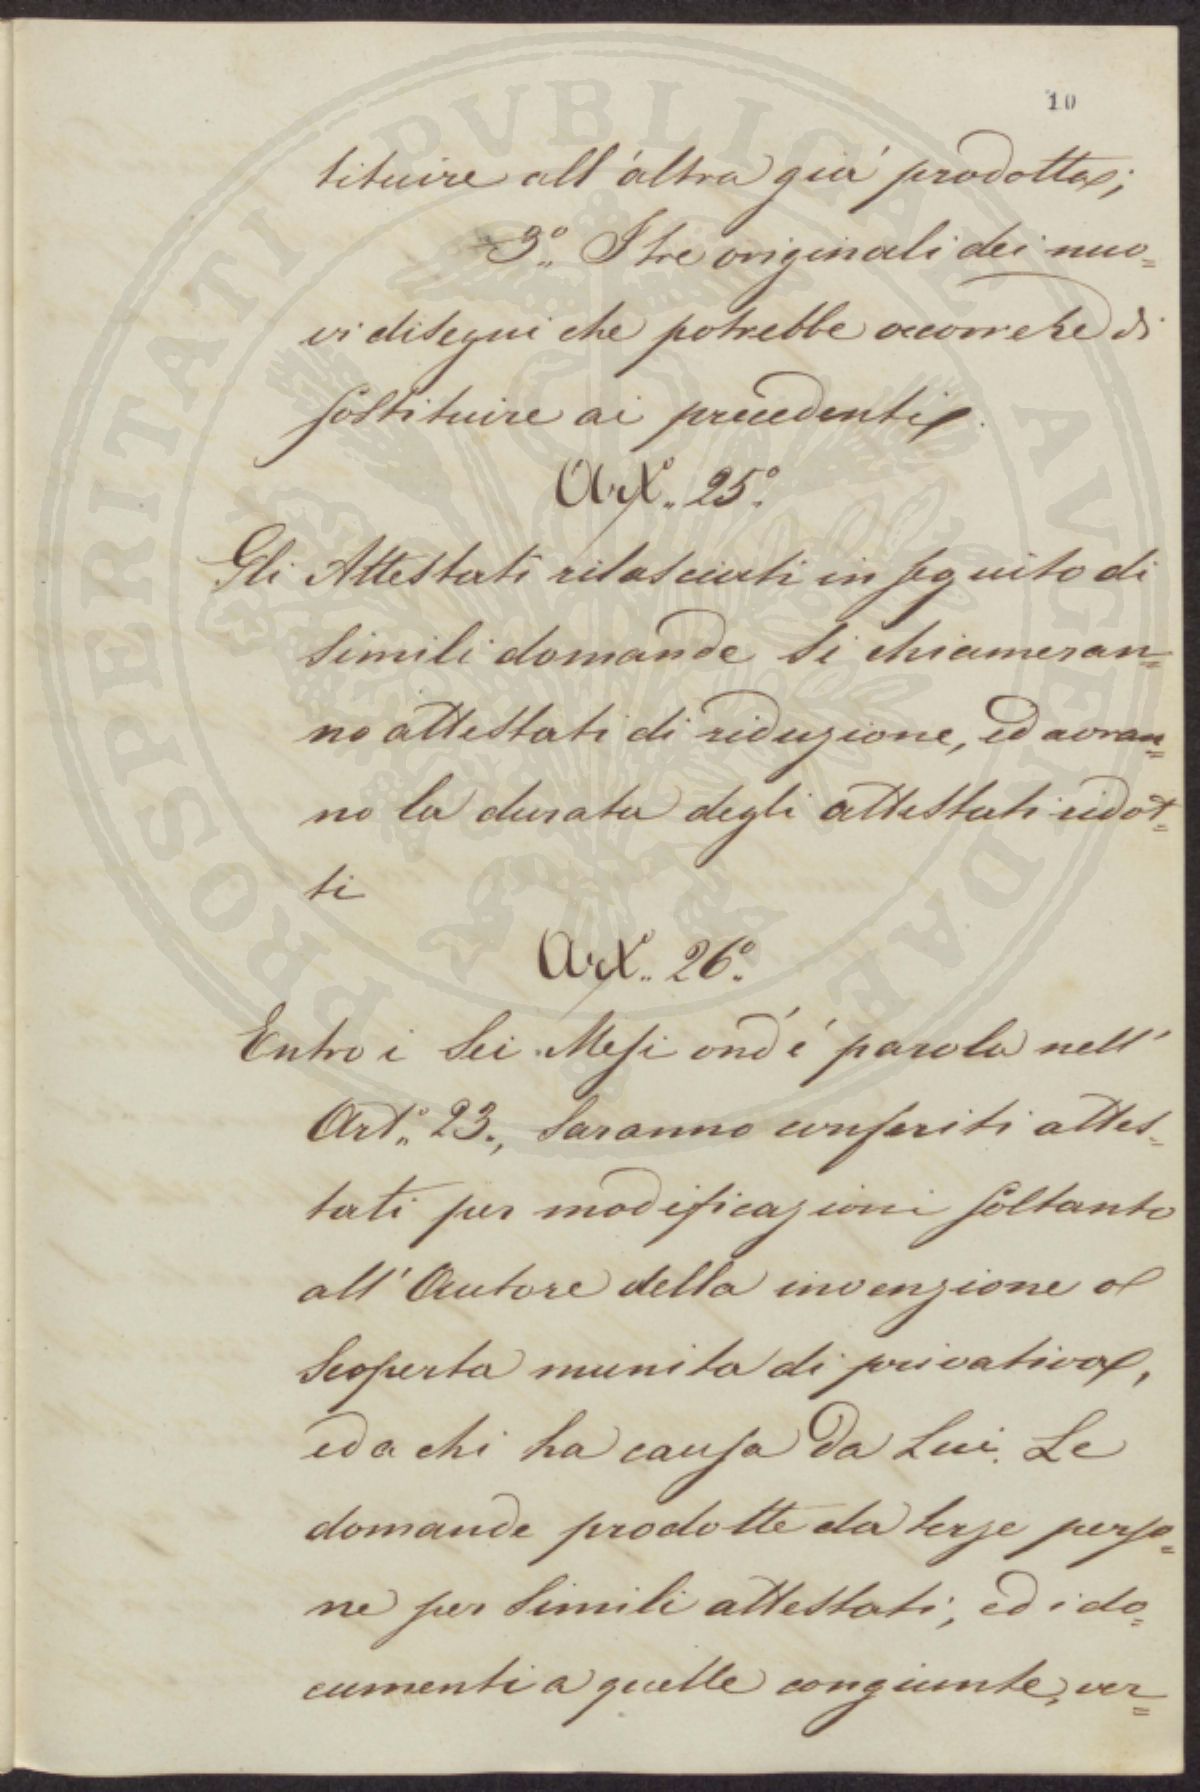 10
tituire all'altra già prodotta;
3º I tre originali dei nuo=
vi disegni che potrebbe occorrere di
sostituire ai precedenti.
Artº 25º.
Gli Attestati rilasciati in seguito di
simili domande si chiameran=
no attestati di riduzione, ed avran=
no la durata degli attestati ridot=
ti
Artº 26º.
Entro i sei Mesi ond'é parola nell'
Artº 23., saranno conferiti attes=
tati per modificazioni soltanto
all'Autore della invenzione o
scoperta munita di privativa,
ed a chi ha causa da Lui. Le
domande prodotte da terze perso=
ne per simili attestati, ed i do=
cumenti a quelle congiunte, ver=
PROSPERITATI PVBLICAE AVGENDAE